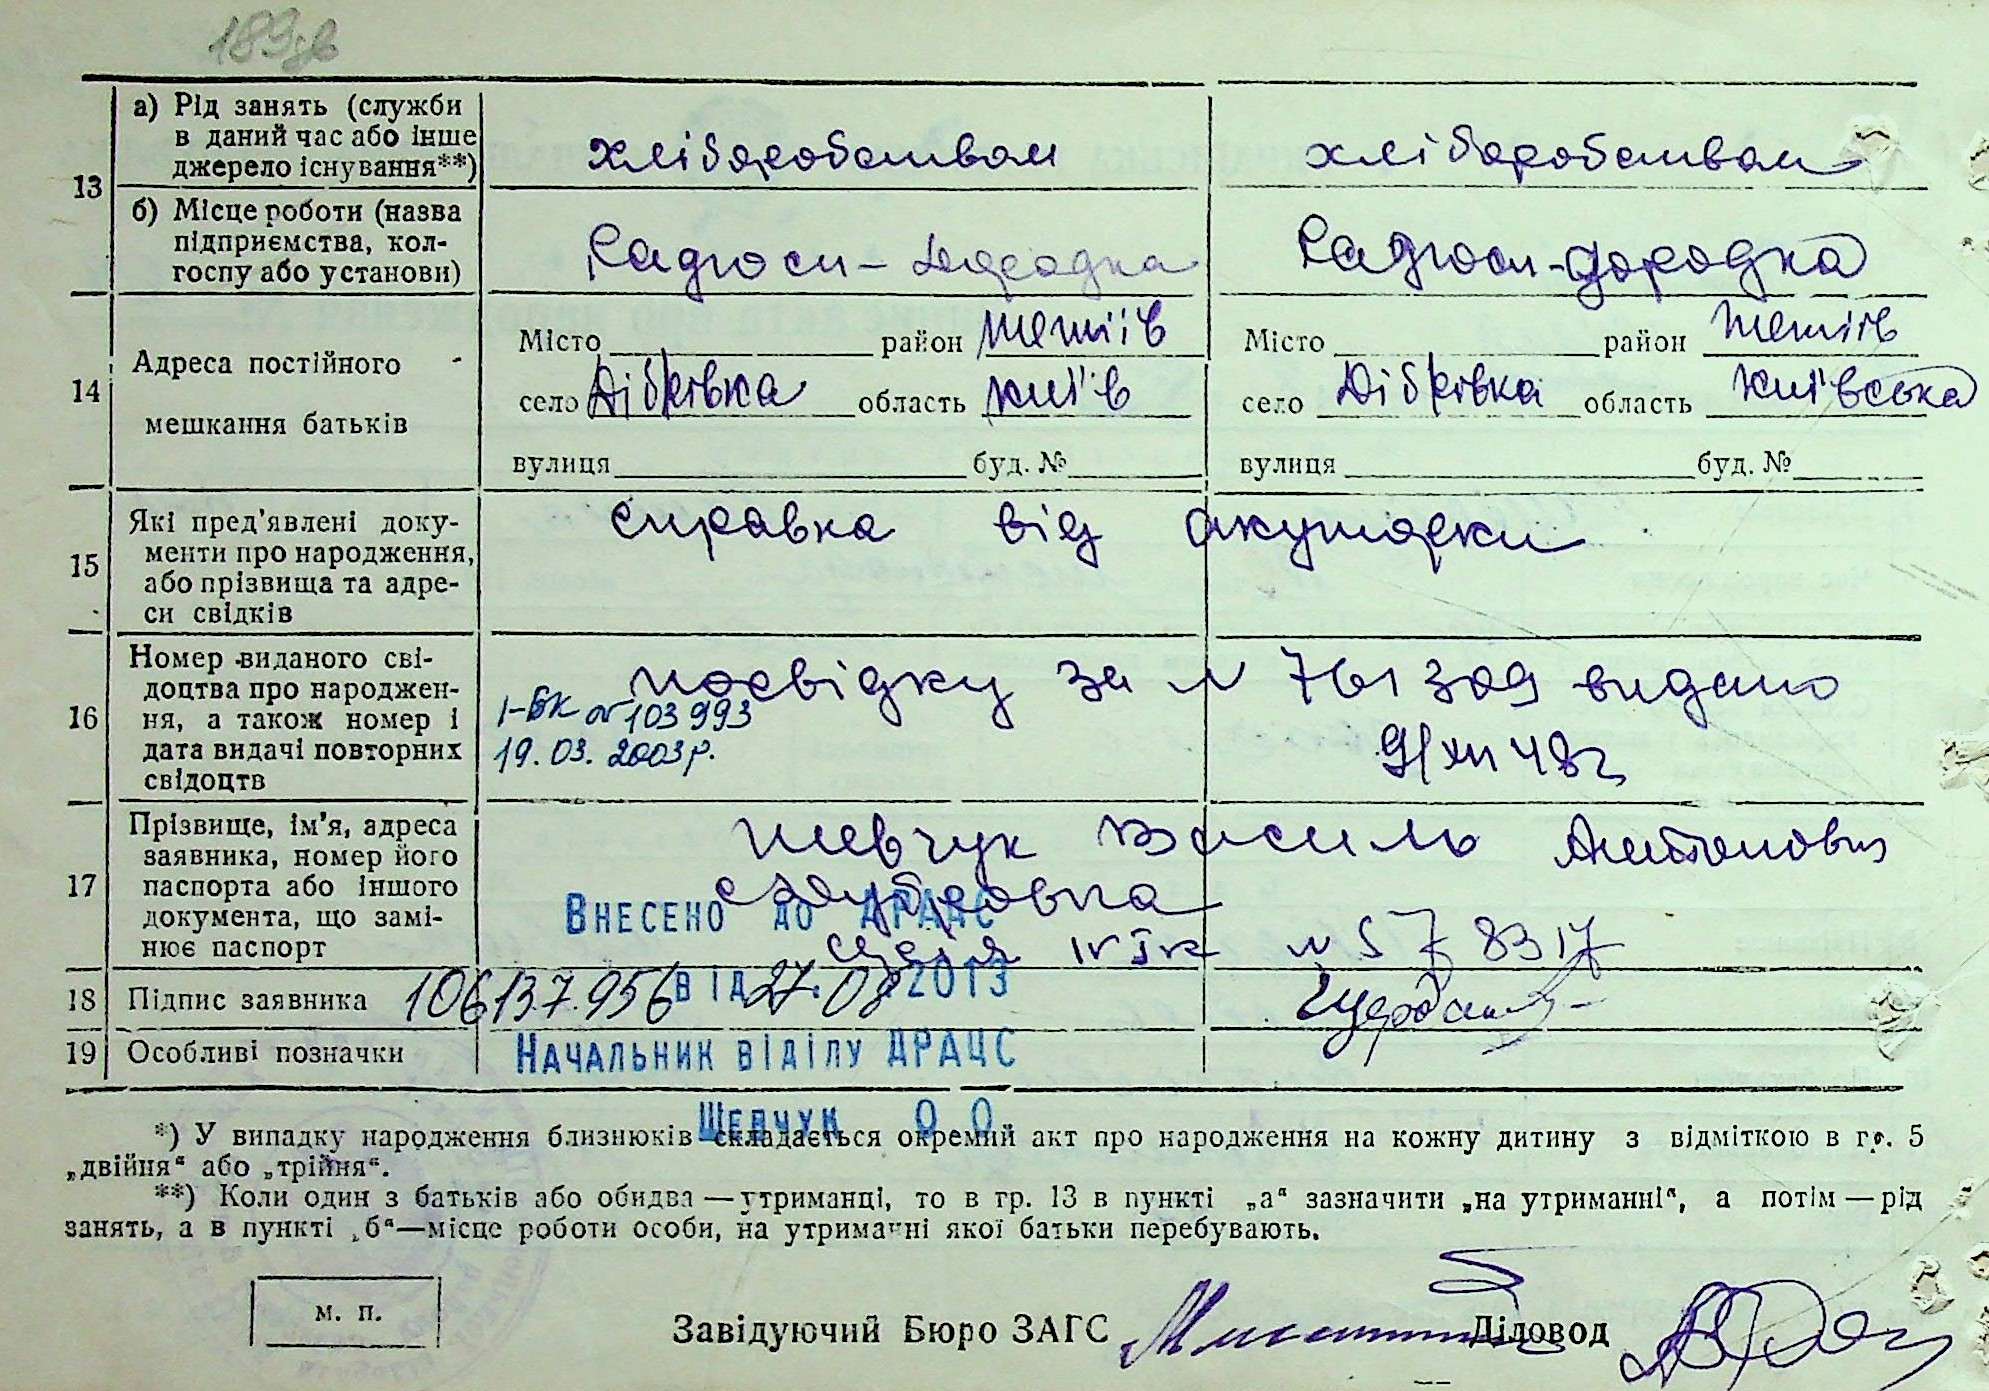 189зв
13
а) Рід занять (служби в даний час або інше джерело існування**)
хліборобством
хліборобством
б) Місце роботи (назва підприємства, колгоспу або установи)
14
Адреса постійного мешкання батьків
Місто район Тетіїв
село Дібрівка область Київ
вулиця буд. №
Місто район Тетіїв
село Дібрівка область Київська
вулиця буд. №
15
Які пред'явлені документи про народження, або прізвища та адреси свідків
справка від акушерки
16
Номер виданого свідоцтва про народження, а також номер і дата видачі повторних свідоцтв
посвідку за № 761309 видано
9/XII 48г
І-БК № 103993
19.03.2003р.
17
Прізвище, ім'я, адреса заявника, номер його паспорта або іншого документа, що замінює паспорт
Шевчук Василь Антонович
с Дібровка
№ 578317
Внесено до ДРАЦС
від 27.08 2013
18
Підпис заявника
106137956
19
Особливі позначки
Начальник віділу ДРАЦС
Шевчук О О
*) У випадку народження близнюків складається окремий акт про народження на кожну дитину з відміткою в гр. 5
„двійня“ або „трійня“.
**) Коли один з батьків або обидва — утриманці, то в гр. 13 в пункті „а“ зазначити „на утриманні“, а потім — рід
занять, а в пункті „б“—місце роботи особи, на утриманні якої батьки перебувають.
м. п.
Завідуючий Бюро ЗАГС Діловод